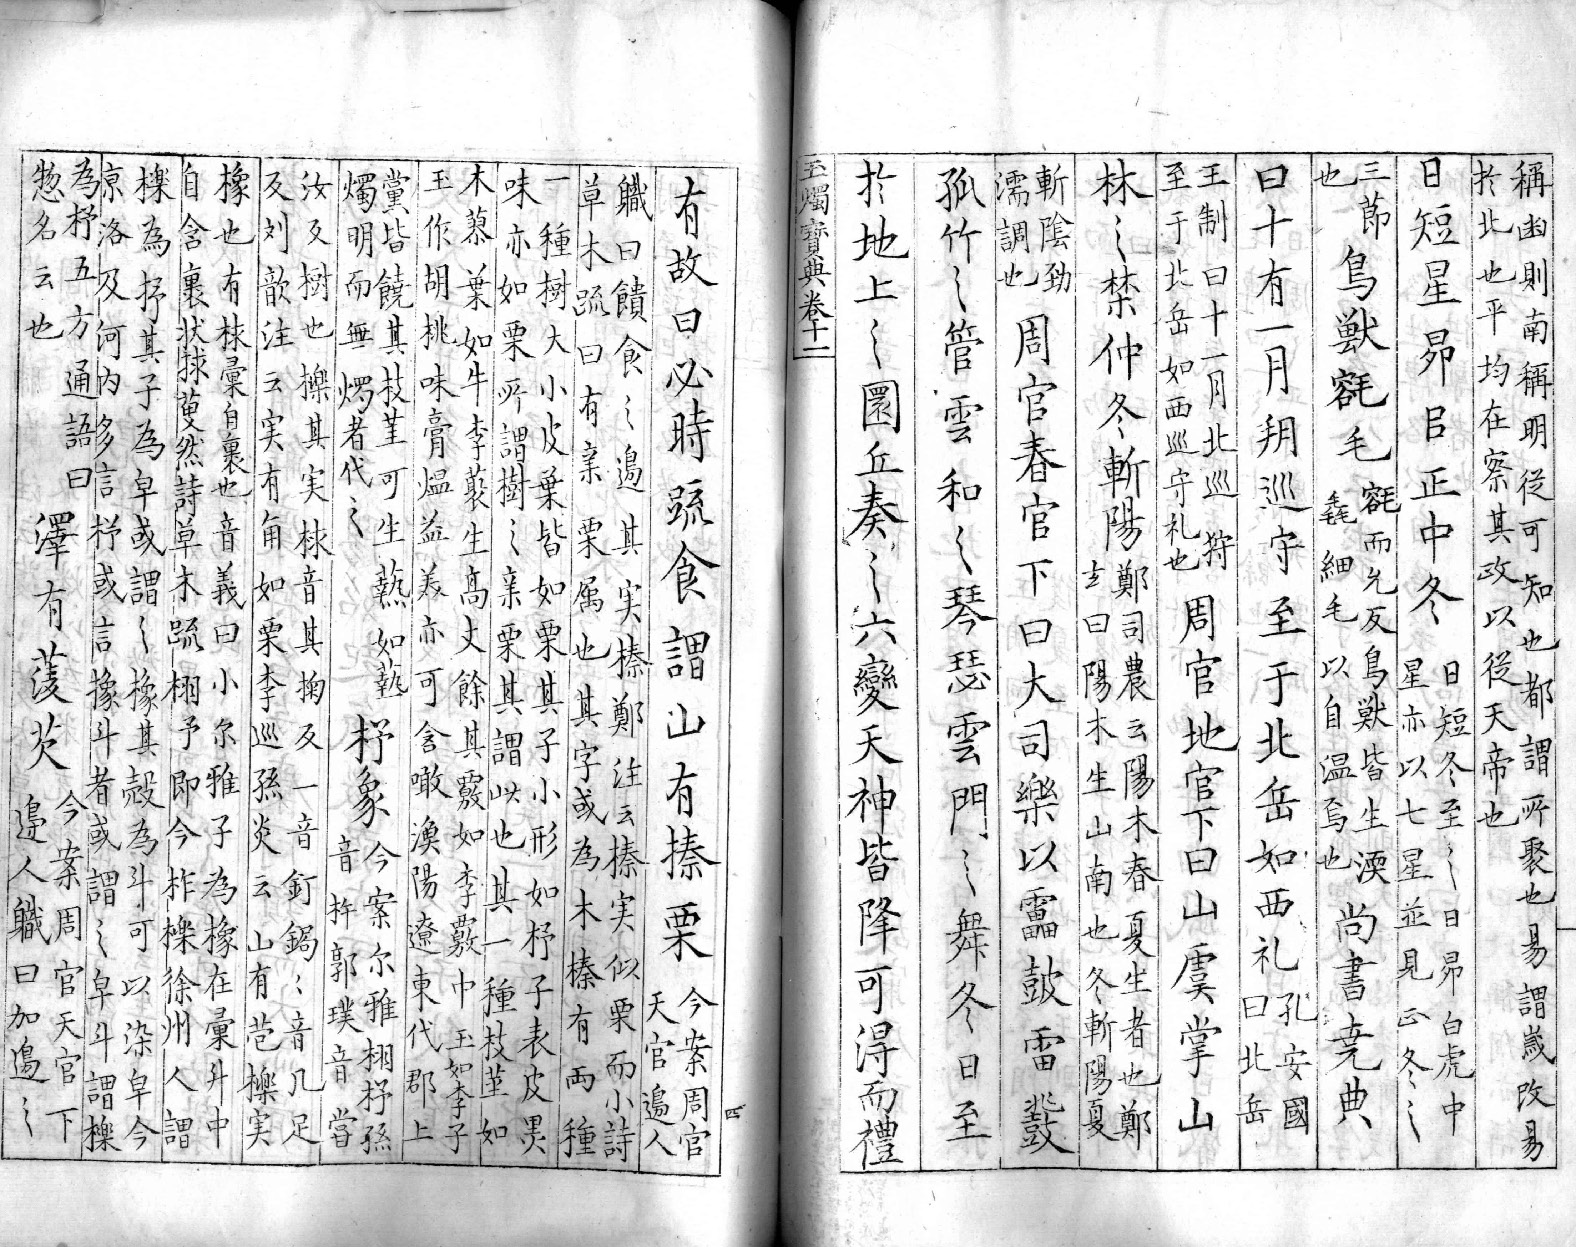 稱幽則南稱明從可知也都謂所聚也易謂歲改易
扵北也平均在察其政以從天帝也
日短星昴㠯正中冬
日短冬至〻日昴白虎中
星亦以七星並見㠯正冬〻
三節
也
鳥獸氄毛
氄而允反鳥獸皆生濡
毳細毛以自温焉也
尚書堯典
曰十有一月朔巡守至于北岳如西礼
孔安國
曰北岳
王制曰十一月北巡狩
至于北岳如西巡守礼也
周官地官下曰山虞掌山
林〻禁仲冬斬陽
鄭司農云陽木春夏生者也鄭
玄曰陽木生山南也冬斬陽夏
斬陰勁
濡調也
周官春官下曰大司樂以靁鼓雷鼗
孤竹〻管雲和〻琴瑟雲門〻舞冬日至
扵地上〻圜丘奏〻六變天神皆降可淂而禮
玉燭寶典卷十一
四
有故曰必時蹠食謂山有搸栗
今案周官
天官邉人
職曰饋食〻邉其实搸鄭注云搸实似栗而小詩
草木䟽曰有亲栗属也其字或為木榛有両種
一種樹大小皮葉皆如栗其子小形如杼子表皮黒
味亦如栗所謂樹〻亲栗其謂此也其一種枝莖如
木蓼葉如牛李蔱生髙丈餘其覈如李覈中玉如李子
玉作胡桃味膏煴益美亦可含噉漁陽遼東代郡上
黨皆饒其技莖可生爇如爇
燭明而無㷄者代〻
杼象
今案尔雅栩杼孫
音杵郭璞音嘗
汝反樹也櫟其实梂音其掬反一音釘鋦〻音几足
反刘歆注云实有角如栗李巡孫炎云山有苞櫟实
橡也有梂彙自裹也音義曰小尔雅子為橡在彙斗中
自含裹状捄蒐然詩草木䟽栩予即今柞櫟徐州人謂
櫟為杼其子為皁或謂〻橡其殼為斗可以染皁今
京洛及河内多言杼或言橡斗者或謂〻皁斗謂櫟
為杼五方通語曰
惣名云也
澤有蓤芡
今案周官天官下
邉人職曰加邉〻